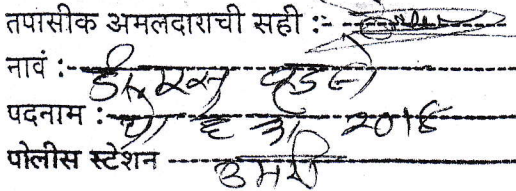 तपासीक अमलदाराची सही :-
नावं :- डी. एस.
पदनाम :- पो हे का २०१४
पोलीस स्टेशन उमरी